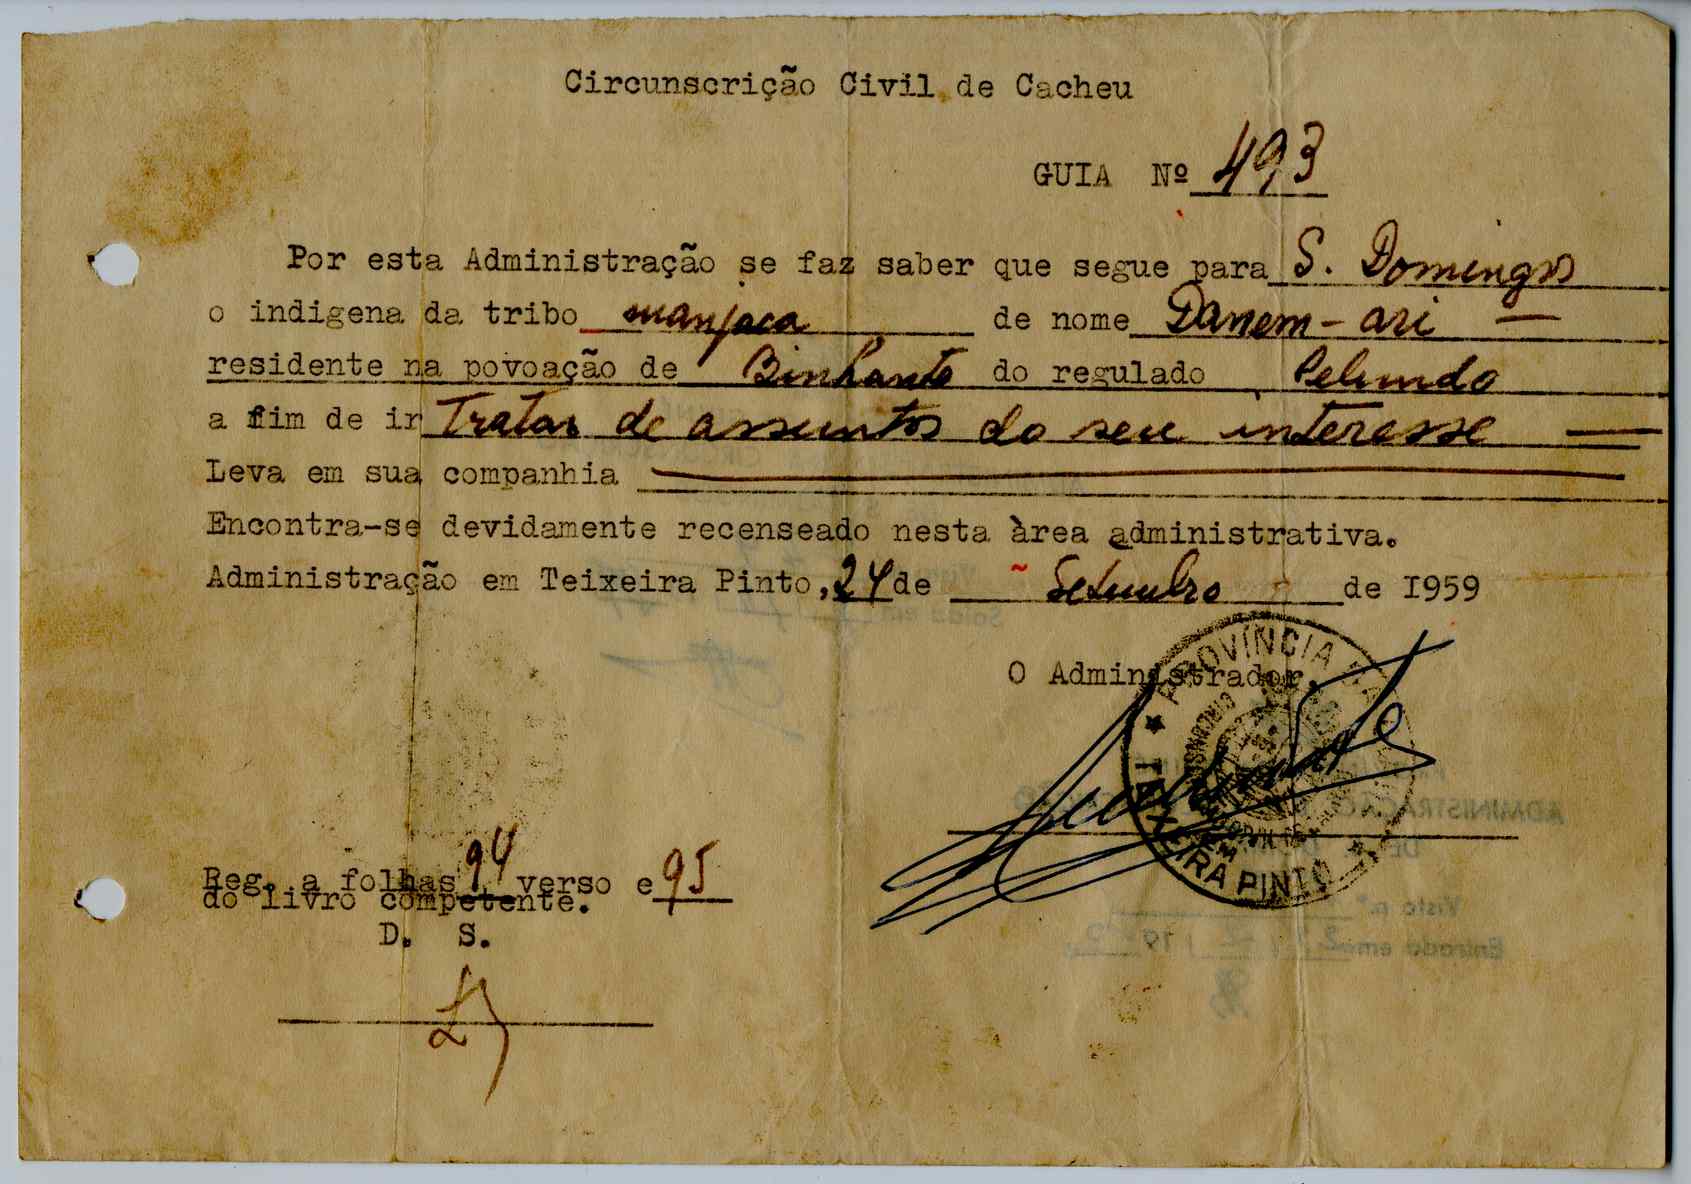 Circunscrição Civil de Cacheu
GUIA Nº 493
Por esta Administração se faz saber que segue para S. Domingos
o indigena da tribo manjaca de nome Danem-ari —
residente na povoação de Binhante do regulado Pelundo
a fim de ir Tratar de assuntos do seu interesse —
Leva em sua companhia
Encontra-se devidamente recenseado nesta àrea administrativa.
Administração em Teixeira Pinto, 24 de Setembro de I959
O Administrador,
PROVÍNCIA DA
CIRCUNS
EM
TEIXEIRA PINTO
Reg. a folhas 94 verso e 95
do livro competente.
D. S.